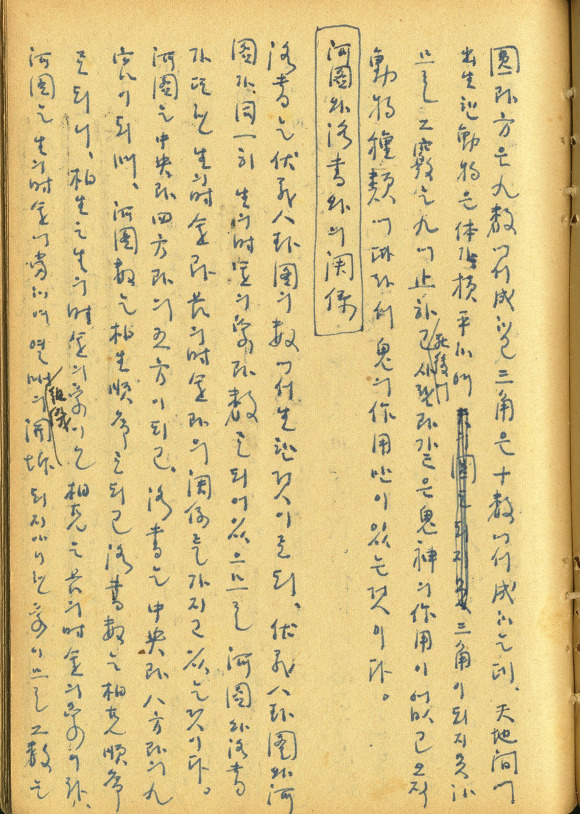 圓과 方은 九數에서 成하고 三角은 十數에서 成하는데、天地間에
出生한 動物은 体가 橫平하며 三角이 되지 못하
므로 그 數는 九에 止하고 死後에 사람과 같은 鬼神의 作用이 없고 오직
動物種類에 따라서 鬼의 作用만이 있는 것이다。
河圖와 洛書와의 関係
洛書는 伏羲八卦圖의 數에서 生한 것이로되、伏羲八卦圖와 河
圖가 同一히 生의 時 金의 象과 數로 되어 있으므로 河圖와 洛書
가 또한 生의 時 金과 長의 時 金과의 関係를 가지고 있는 것이다。
河圖는 中央과 四方과의 五方이 되고、洛書는 中央과 八方과의 九
宮이 되며、河圖數는 相生順序로 되고 洛書數는 相克順序
로 되니、相生은 生의 時 金의 象이오 相克은 長의 時 金의 象이라、
河圖는 生의 時 金에 當하여 열매의 組織 되지 아니한 象이므로 그 數는